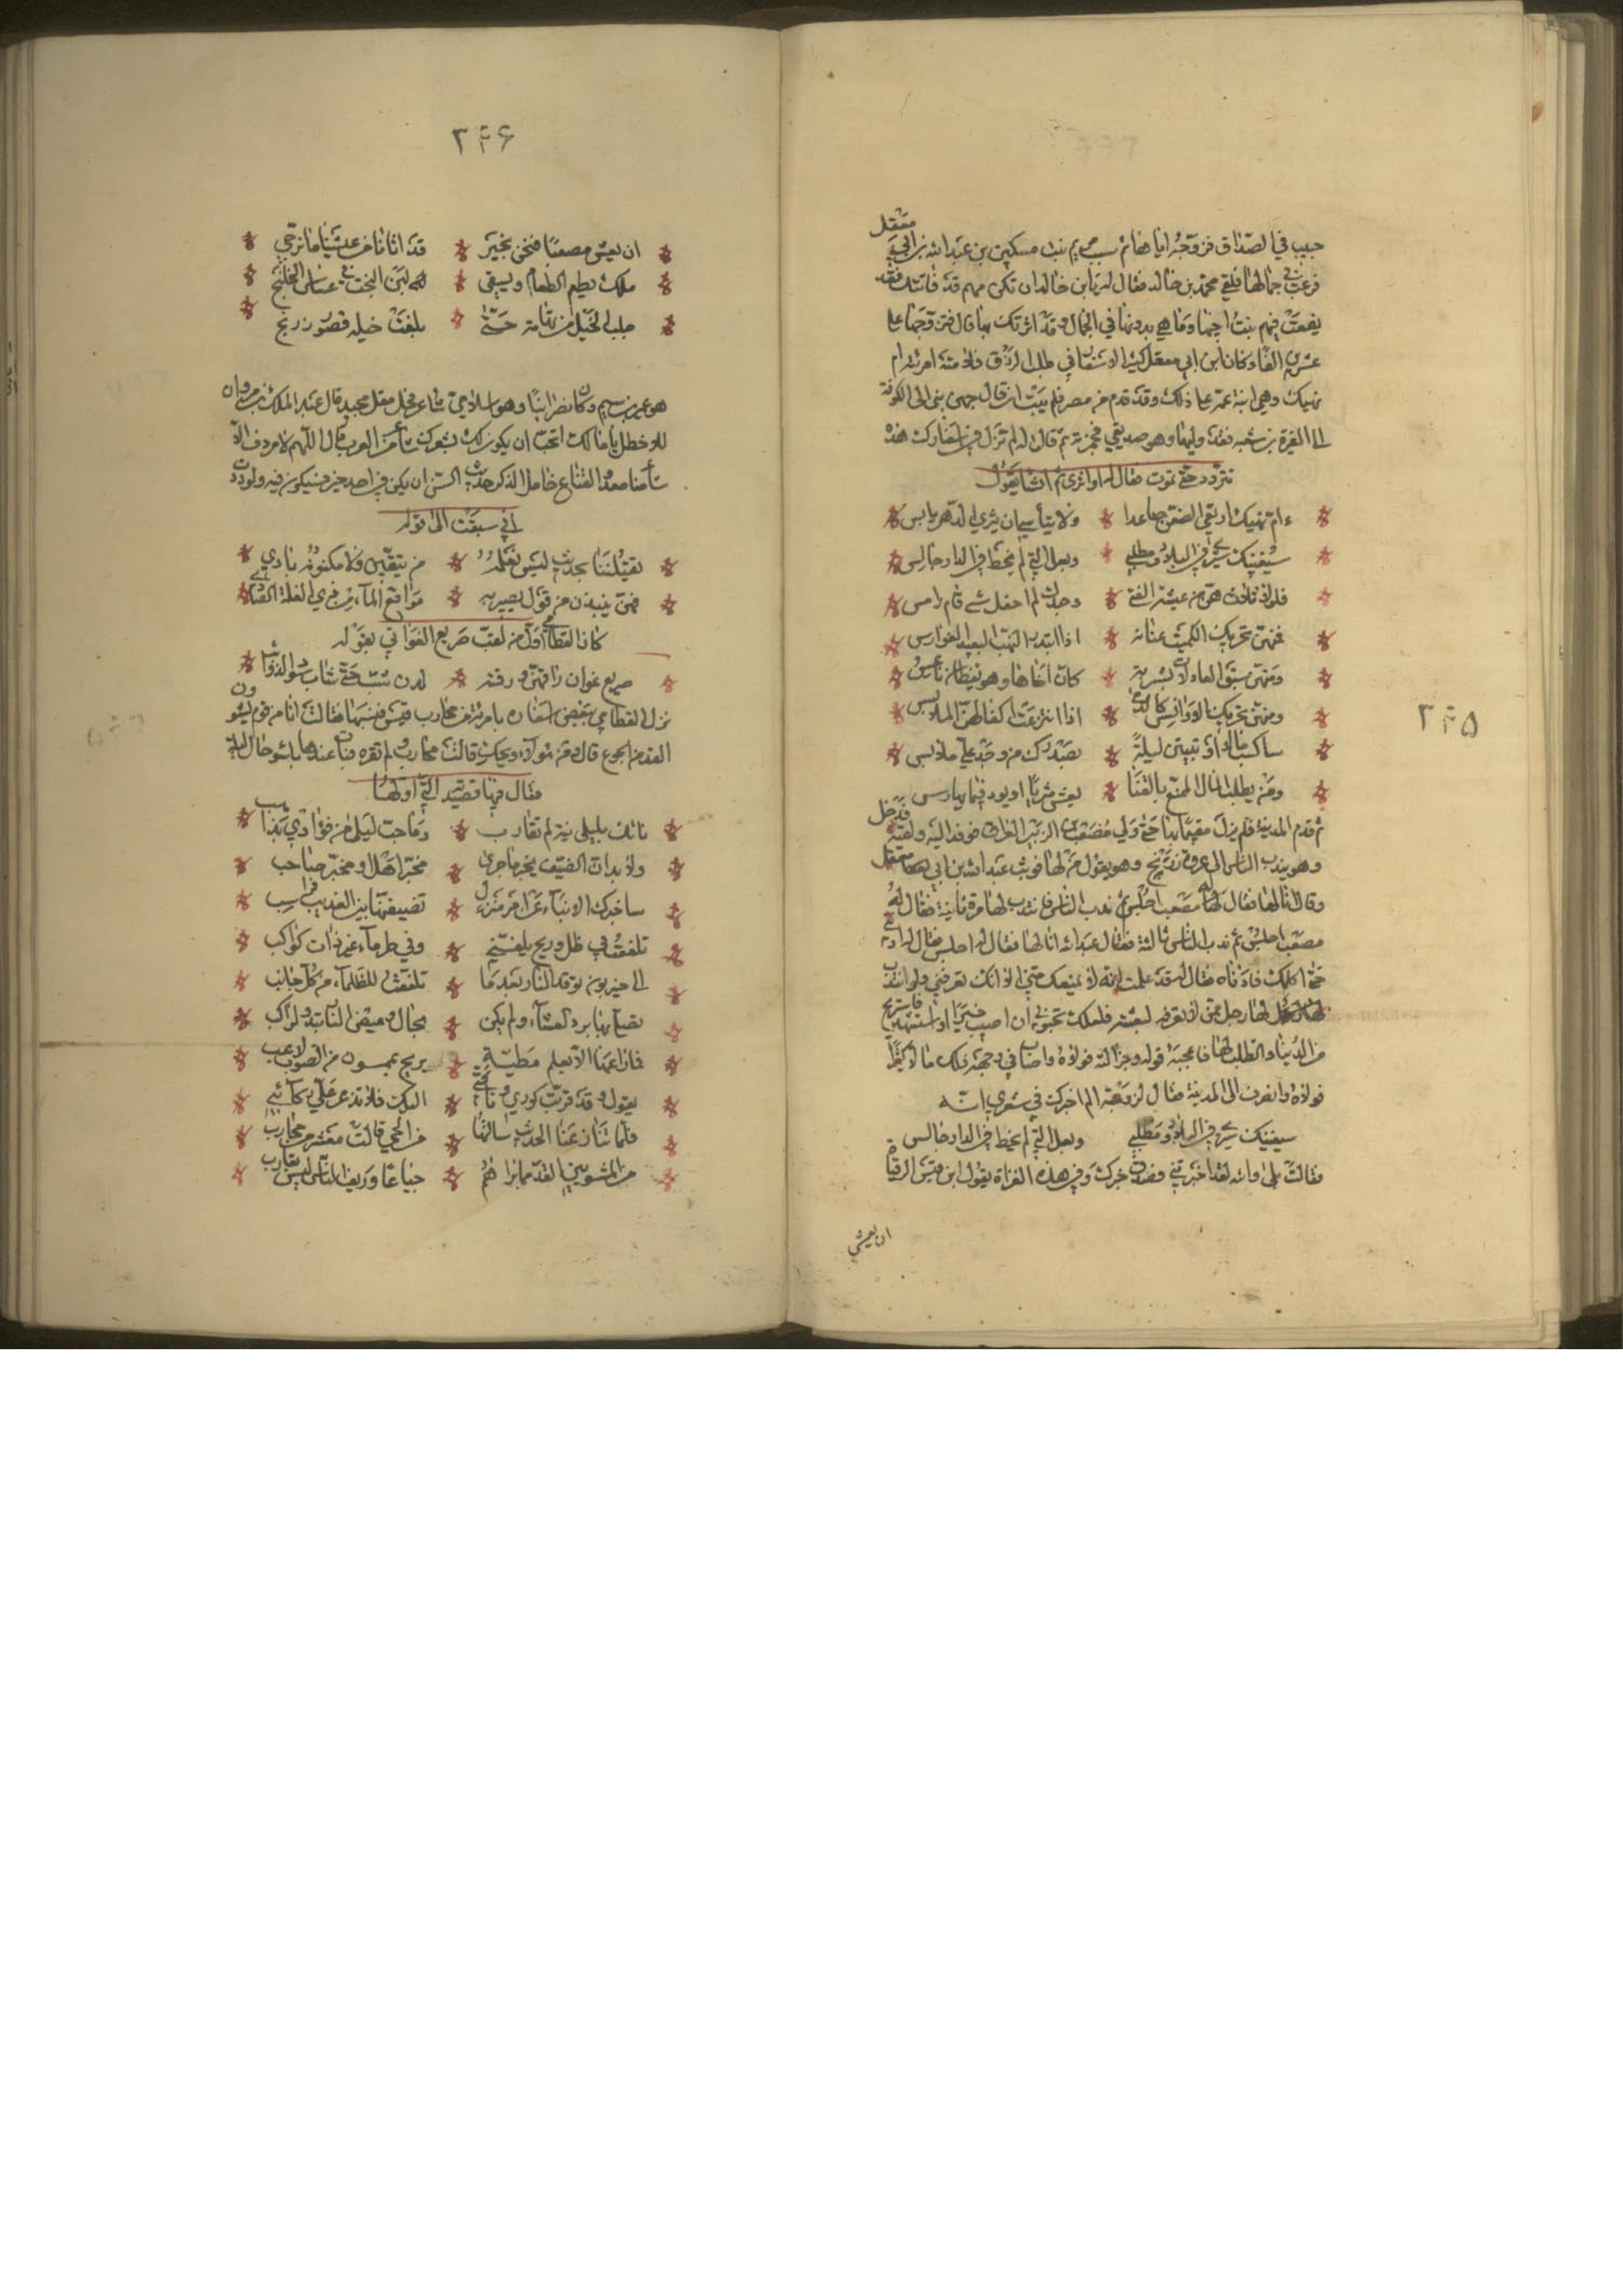 معقل
حبيب في الصداق فزوجه اياها ثم سبب مريم بنت مسكين بن عبد الله بن ابي
فرغب في جمالها فلقي محمد بن خالد فقال له يا بن خالد ان تكن مريم قد فاتتك فقد
يفعت فيهم بنت اختها وما هي بدونها في الجمال وقد اثرتك بها قال فتزوجها على
عشرين الفا وكان ابن ابي معقل كثير الاسفار في طلب الرزق فلامته امرئته ام
نهيك وهي ابنة عمه على ذلك وقد قدم من مصر فلم يلبث ان قال جهزيني الى الكوفة
الى المغيرة بن شعبه فقد وليها وهو صديقي فجهزته ثم قالت له لم تزل في اسفارك هذه
تتردد حتى تموت فقال لها او اثرى ثم انشا يقول
ءام نهيك ارفعي الضعن صاعدا ولا تيأسي ان يثري الدهر بايس
سيغنيك سيري في البلاد ومطلبي وبعل التي لم تحظ في الدار جالس
فلولا ثلاث هن من عيشة الفتى وجدك لم احفل متى قام رامس
فمنهن تحريك الكميت عنانه اذا ابتدر النهب البعيد الفوارس
ومنهن سبق العاذلات بشربة كان اخاها وهو يقظان ناعس
ومنهن تحريك الاوانس كالدمى اذا ابتزعت اكفالهن الملابس
ساكسب مالا او تبيتن ليلة بصدرك من وجد علي ملابس
ومن يطلب المال الممنع بالقنا يعش مثريا او يود فيما يمارس
ثم قدم المدينة فلم يزل مقيما بها حتى ولي مصعب بن الزبير العراق فوفد اليه ولقيه فدخل
وهو يندب الناس الى غزوة زرنج وهو يقول من لها فوثب عبد الله بن ابي معقل
وقال انا لها فقال له مصعب اجلس ثم ندب الناس فانتدب لها مرة ثانية فقال له
مصعب اجلس ثم ندب الناس ثالثة فقال عبد الله انا لها فقال له اجلس فقال له ادنني
حتى اكلمك فادناه فقال له قد علمت انه لا يمنعك مني الا انك تعرفني ولو انتدب
لها رجل ممن لا تعرفه لبعثته فلعلك تحبوني ان اصيب خيرا او استشهد فاستريح
من الدنيا والطلب لها فاعجبه قوله وجزالته فولاه واصاب في وجهته تلك مالا كثيرا
فولاه وانصرف الى المدينة فقال لزوجته الم اخبرك في شعري انه
سيغنيك سيري في البلاد ومطلبي وبعل التي لم تحظ في الدار جالس
فقالت بلى والله لقد اخبرتني وصدق خبرك وفي هذه الغزاة يقول ابن قيس الرقيات
ان يعش
۲۴۵
۲۴۶
ان يعش مصعبا فنحن بخير قد اتانا من عيشنا ما نرجي
ملك يطعم الطعام ويسقي لبن البخت في عساس الخلنج
جلب الخيل من تهامة حتى بلغت خيله قصور زرنج
هو عمير بن سيم وكان نصرانيا وهو اسلامي شاعر فحل مقل مجيد قال عبد الملك بن مروان
للاخطل يا اخا لك اتحب ان يكون لك بشعرك شاعر من العرب قال اللهم لا مردف الا
شاعرا منا مغدف القناع خامل الذكر حديث السن ان يكن في احد خير فسيكون فيه ولوددت
اني سبقت الى قوله
يقتلننا بحديث ليس يعلمه من يتقين ولا مكنونه بادي
فهن ينبذن من قول يصبن به مواقع الماء من ذي الغلة الصادي
كان القطامي اول من لقب صريع الغواني بقوله
صريع غوان راقهن ورقنه لدن شب حتى شاب سود الذوائب
نزل القطامي ببعض اسفاره بامرئة من محارب قيس فنسبها فقالت انا من قوم يشوون
القد من الجوع قال ومن هولاء ويحك قالت محارب ولم تقره فبات عندها باسوء حال ليلة
فقال فيها قصيدته التي اولها
ناتك بليلى نية لم تقارب وما حب ليلى من فؤادي بذاهب
ولا بد ان الضيف يخبر ما جرى مخبر اهل او مخبر صاحب
ساخبرك الانباء عن ام منزل تضيفتها بين العذيب فراسب
تلفعت في طل وريح يلفني وفي طرمساء غير ذات كواكب
الى حيزبون توقد النار بعد ما تلفعت للظلماء من كل جانب
تصلى بها برد العشاء ولم يكن يخال وميض النار يبدو لراكب
فما راعها الا بغام مطية يريح بمحسور من الصوت لاغب
يقول وقد قربت كوري وناقتي اليك فلا تذعر علي ركائبي
فلما تنازعنا الحديث سالتها من الحي قالت معشر من محارب
من المشتوين القد مما تراهم جياعا وريف الناس ليس بقارب